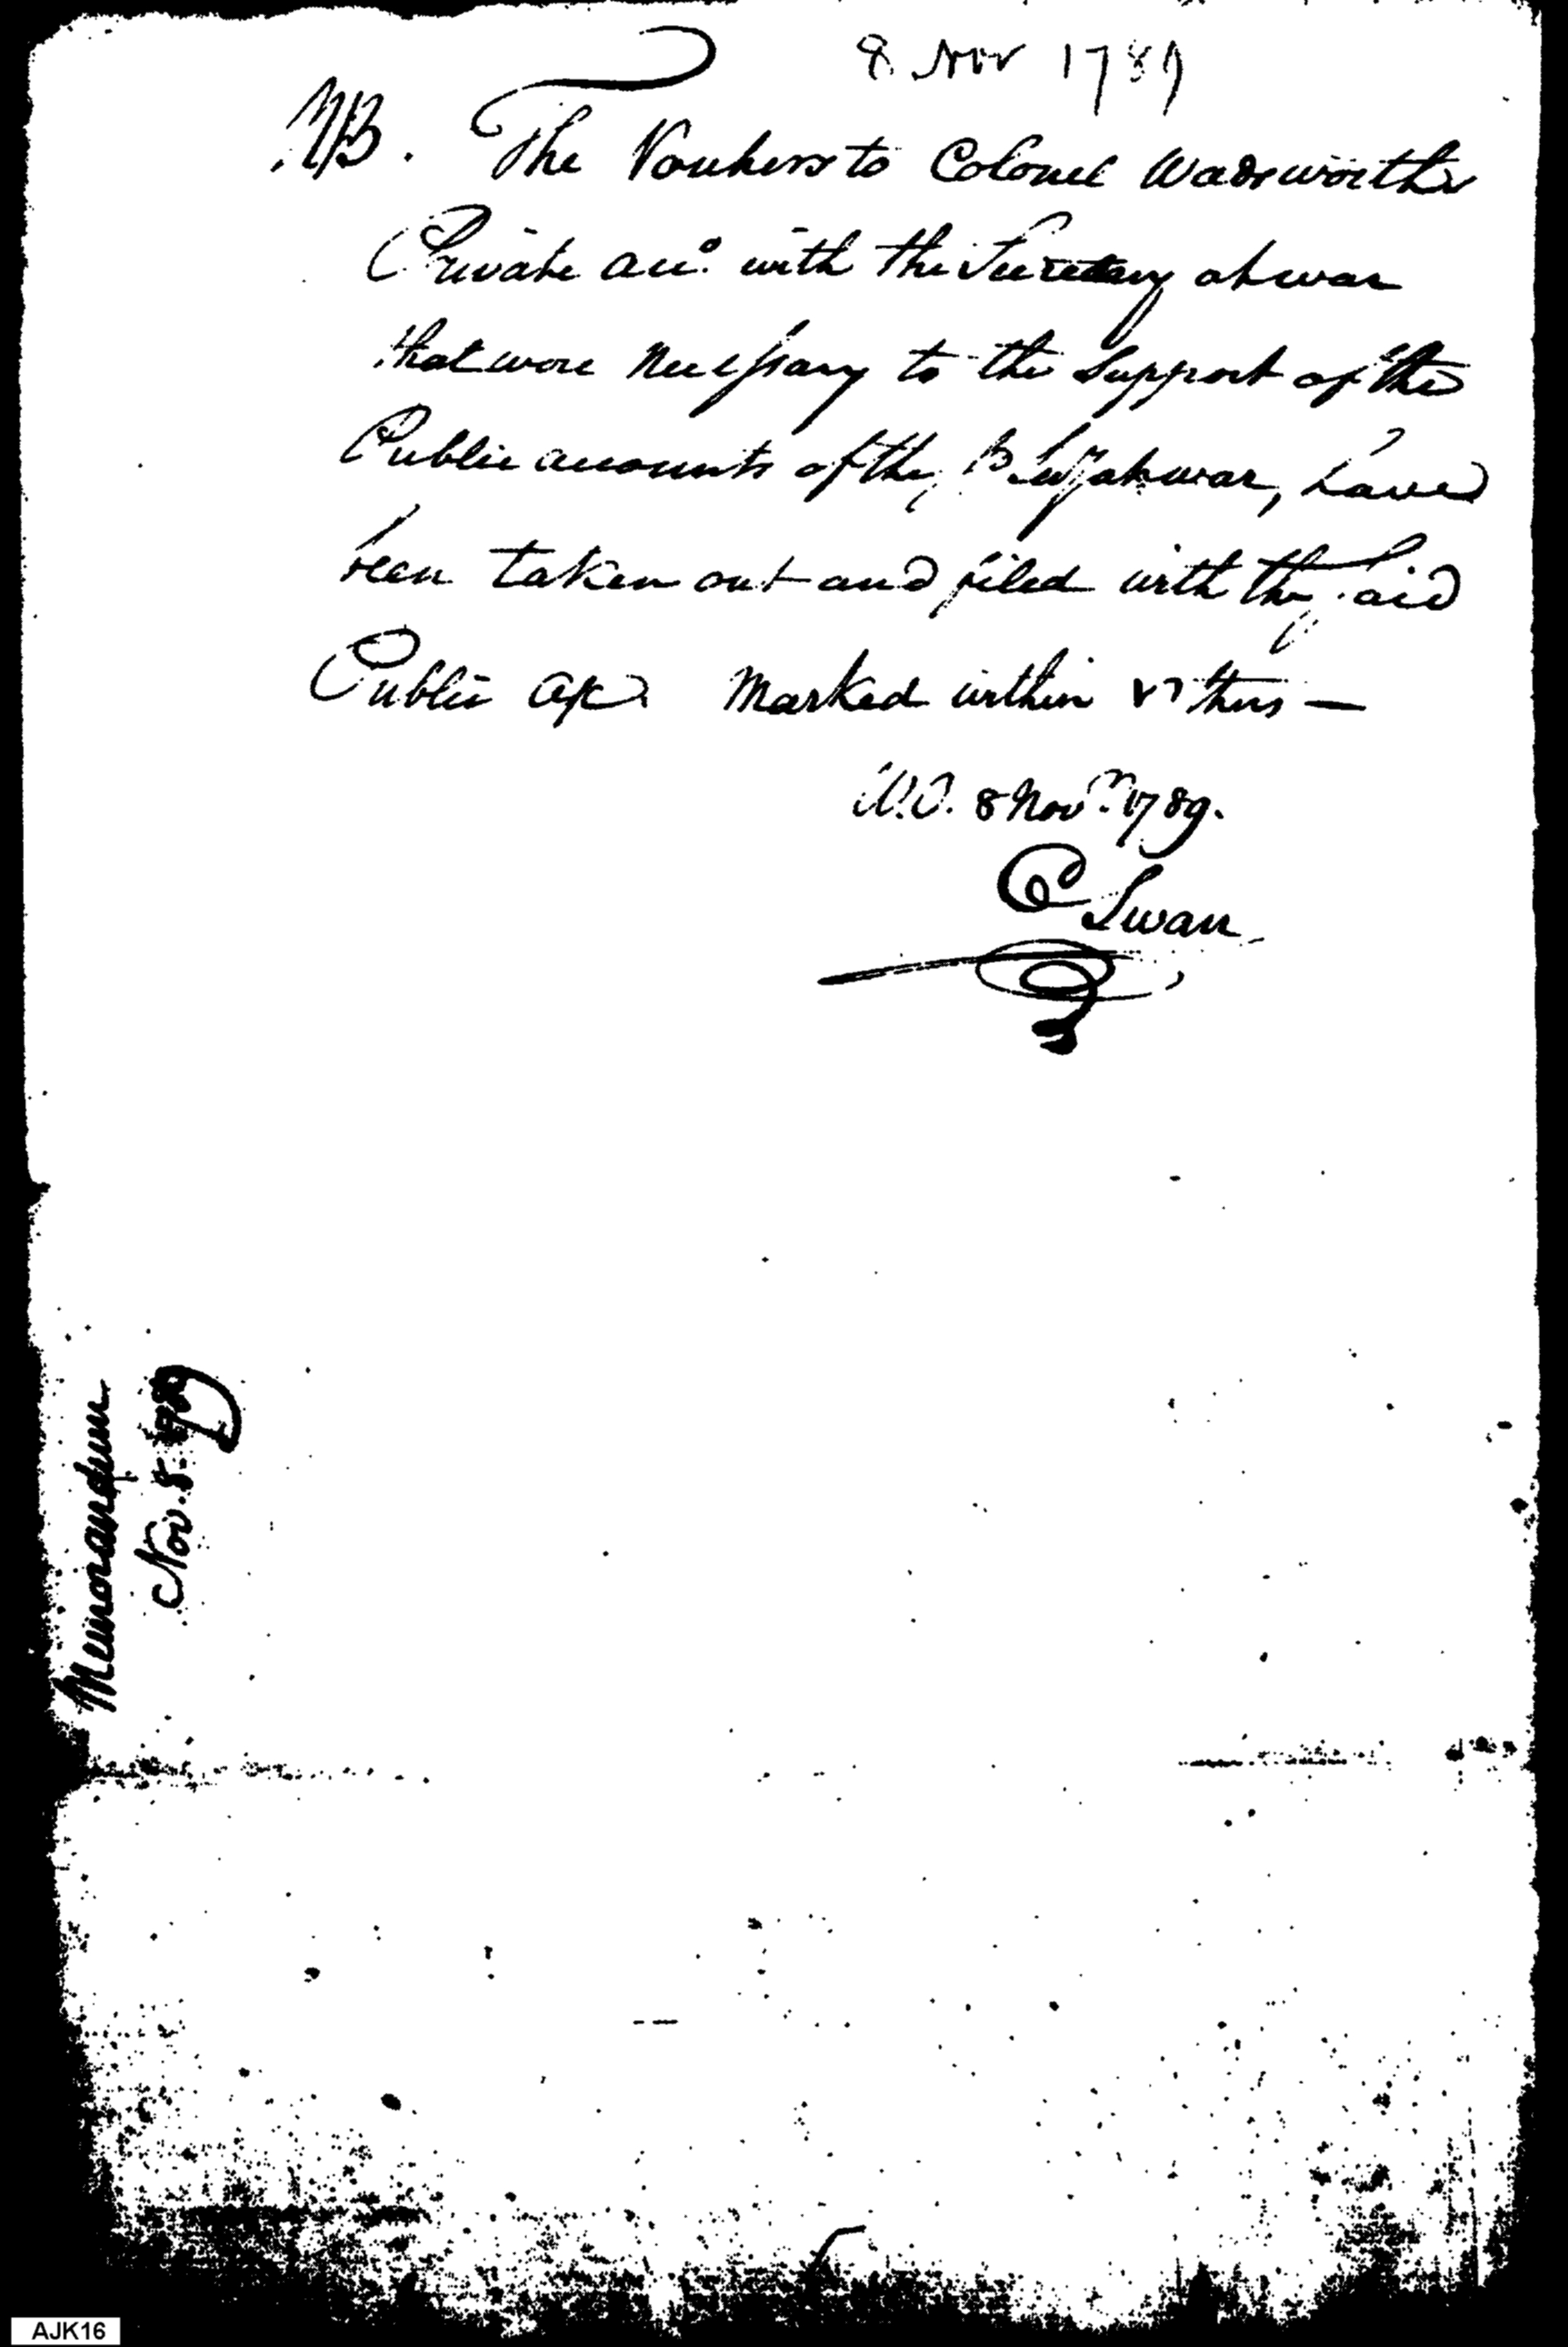 8 Nov 1789
NB. The Vouchers to Colonel Wadsworths
Private acco. with the Secretary at war
that were necessary to the support of the
Public accounts of the, Secy at war, have
been taken out and filed with the said
Public a/c marked within thus —
W.O. 8 Novr. 1789.
C Swan
Memorandum
Nov. 8. 1789
AJK16